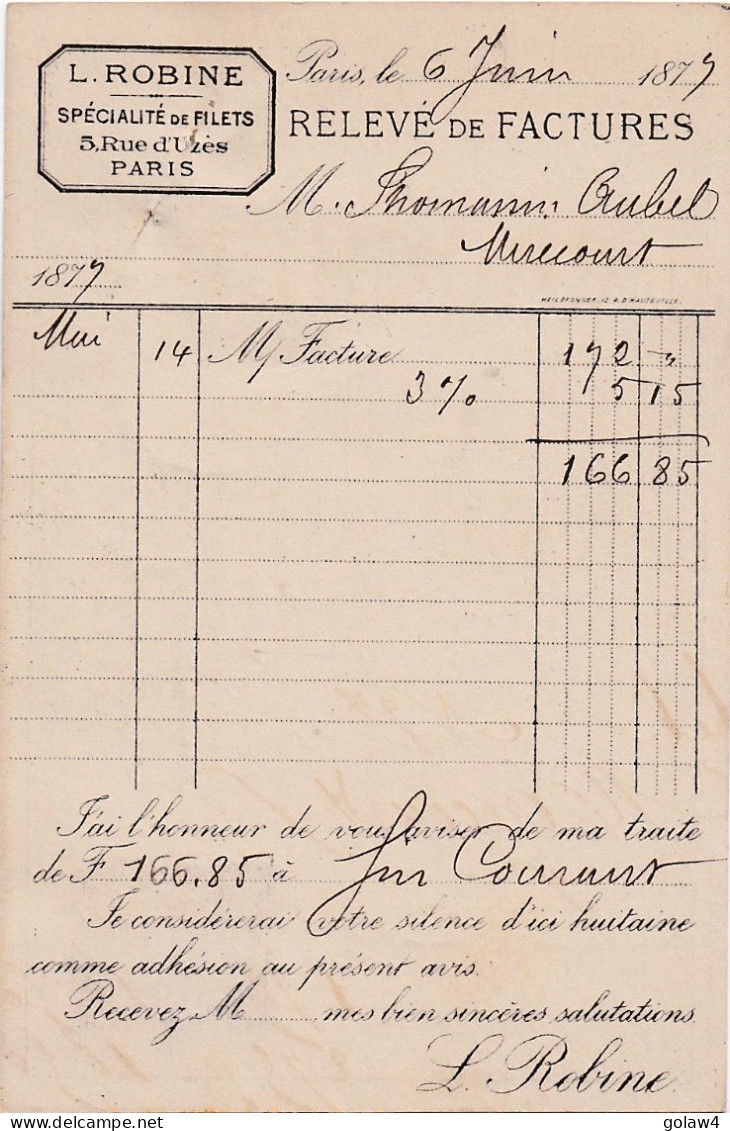 L. ROBINE
SPÉCIALITÉ DE FILETS
5, Rue d'Uzès
PARIS
Paris, le 6 Juin 1877
RELEVÉ DE FACTURES
M. Thomassin Aubel
Mirecourt
1877
HEILBRONNER, 12 R. D'HAUTEVILLE.
Mai 14 M/ Facture 172 - "
3 % 5 15
166 85
J'ai l'honneur de vous aviser de ma traite
de F 166.85 à fin Courant
Je considérerai votre silence d'ici huitaine
comme adhésion au présent avis.
Recevez, M mes bien sincères salutations.
L. Robine
golaw4